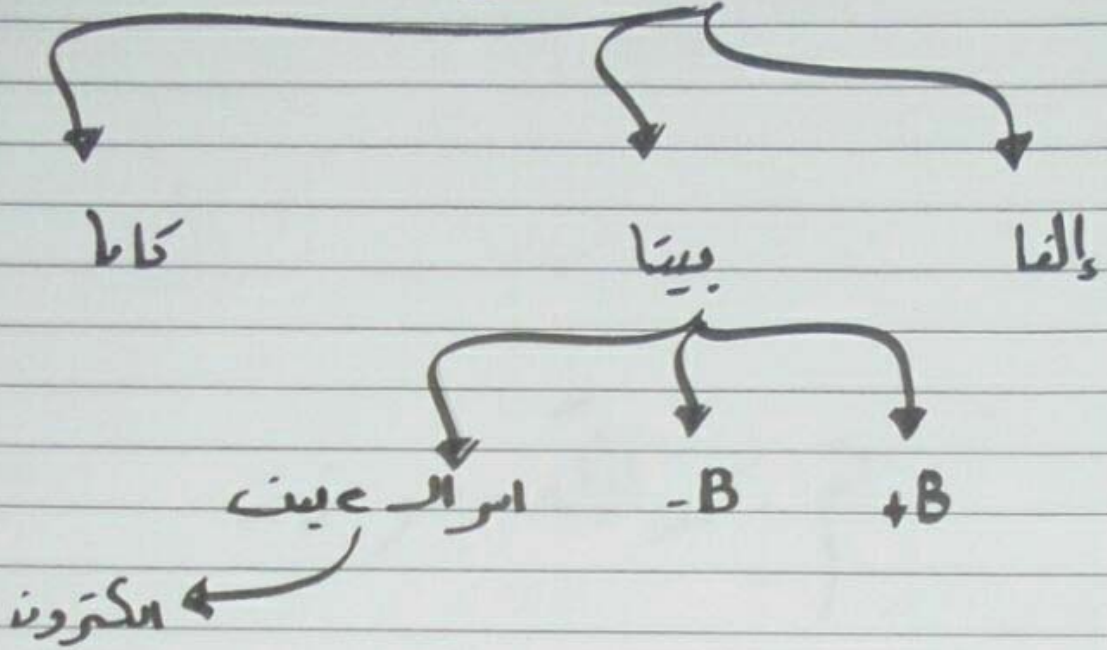 إلفا بيتا كاما
+B -B اسر الـ e بيت
الكترون